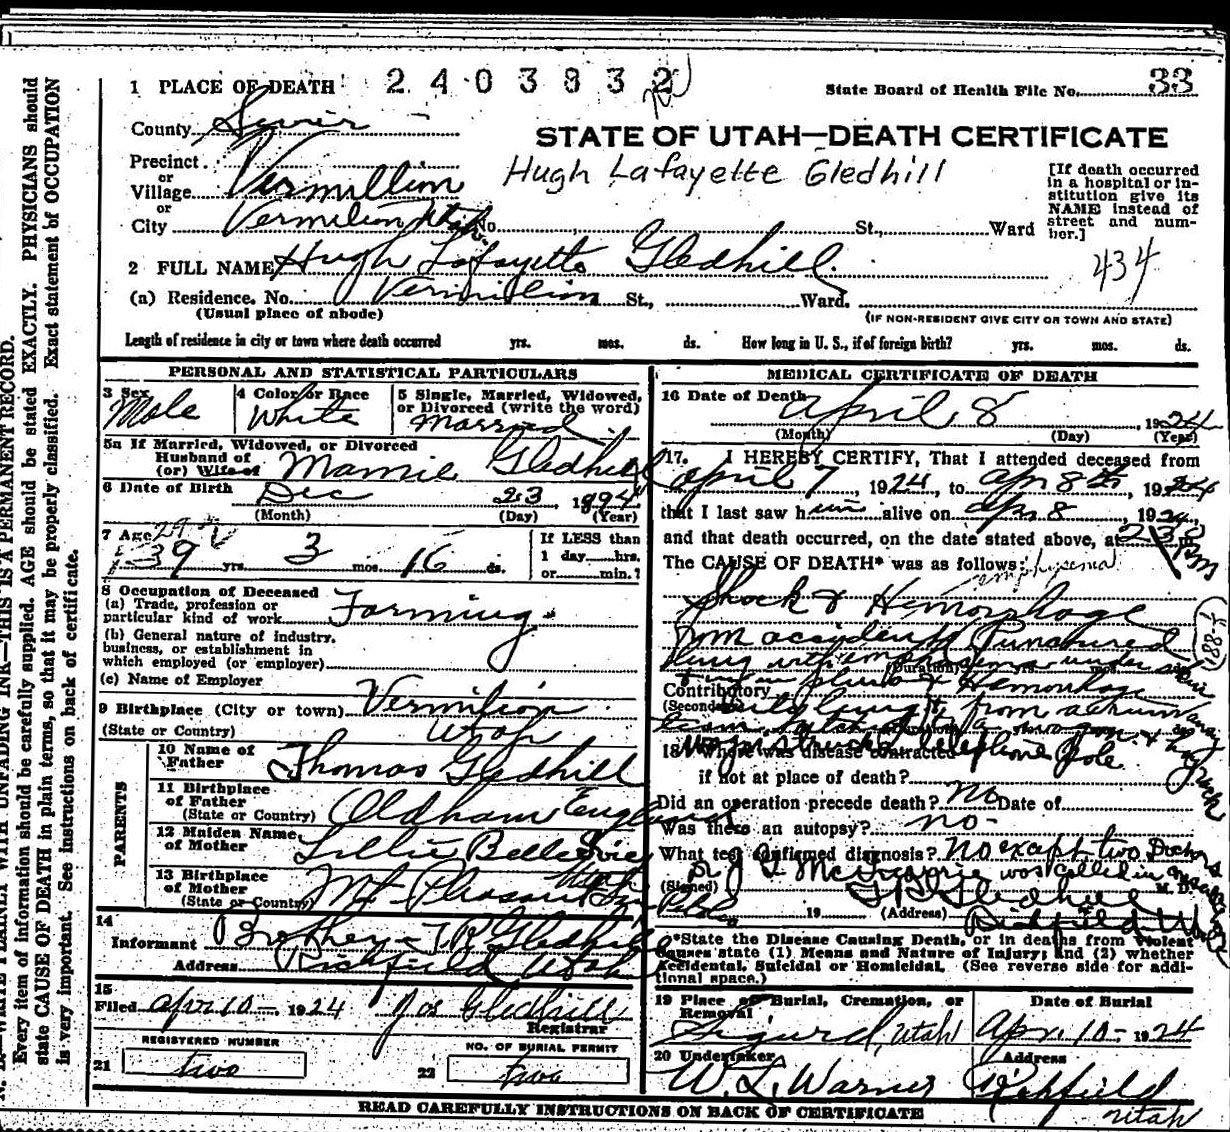 1 PLACE OF DEATH 2403832
State Board of Health File No. 33
County Sevier
STATE OF UTAH—DEATH CERTIFICATE
Precinct
or
Village Vermillion
Hugh Lafayette Gledhill
[If death occurred
in a hospital or in-
stitution give its
NAME instead of
street and num-
ber.]
or
City Vermilion Utah No. St., Ward
434
2 FULL NAME Hugh Lafayette Gledhill.
(a) Residence. No. Vermillion St., Ward.
(Usual place of abode)
(IF NON-RESIDENT GIVE CITY OR TOWN AND STATE)
Length of residence in city or town where death occurred yrs. mos. ds. How long in U. S., if of foreign birth? yrs. mos. ds.
PERSONAL AND STATISTICAL PARTICULARS
3 Sex Male
4 Color or Race White
5 Single, Married, Widowed,
or Divorced (write the word)
Married
5a If Married, Widowed, or Divorced
Husband of
(or) Wife of Mamie Gledhill
6 Date of Birth Dec 23 1894
(Month) (Day) (Year)
7 Age 29
39 yrs. 3 mos. 16 ds.
If LESS than
1 day hrs.
or min.?
8 Occupation of Deceased
(a) Trade, profession or
particular kind of work Farming
(b) General nature of industry,
business, or establishment in
which employed (or employer)
(c) Name of Employer
9 Birthplace (City or town) Vermilion
(State or Country) Utah
PARENTS
10 Name of
Father Thomas Gledhill
11 Birthplace
of Father
(State or Country) Oldham England
12 Maiden Name
of Mother Lillie Belle Ivie
13 Birthplace
of Mother
(State or Country) Mt Pleasant Utah
14
Informant Brother T.R. Gledhill
Address Richfield Utah
15
Filed Apr 10 1924 Jos Gledhill
Registrar
REGISTERED NUMBER
21 two
NO. OF BURIAL PERMIT
22 two
MEDICAL CERTIFICATE OF DEATH
16 Date of Death April 8, 1924
(Month) (Day) (Year)
17. I HEREBY CERTIFY, That I attended deceased from
April 7, 1924, to Apr 8th, 1924
that I last saw him alive on Apr 8, 1924,
and that death occurred, on the date stated above, at 230 Pm
The CAUSE OF DEATH* was as follows:
emphysema
Shock & Hemorrhage
from accident Punctured
lung with emphysema under skin
188-I
(Duration) yrs. mos.
Contributory Hemorrhage
(Secondary)
from a
18 Where was disease contracted telephone Pole
if not at place of death?
Did an operation precede death? No Date of
Was there an autopsy? no-
What test confirmed diagnosis? No except two Doctors
Dr J. McQuarrie was called in
(Signed) T R Gledhill M. D.
19 (Address) Richfield Utah
*State the Disease Causing Death, or in deaths from Violent
Causes state (1) Means and Nature of Injury; and (2) whether
Accidental, Suicidal or Homicidal. (See reverse side for addi-
tional space.)
19 Place of Burial, Cremation, or
Removal
Sigurd, Utah
Date of Burial
Apr. 10- 1924
20 Undertaker
W. L. Warner
Address
Richfield
Utah
READ CAREFULLY INSTRUCTIONS ON BACK OF CERTIFICATE
N. B.—WRITE PLAINLY WITH UNFADING INK—THIS IS A PERMANENT RECORD.
Every item of information should be carefully supplied. AGE should be stated EXACTLY. PHYSICIANS should
state CAUSE OF DEATH in plain terms, so that it may be properly classified. Exact statement of OCCUPATION
is very important. See instructions on back of certificate.